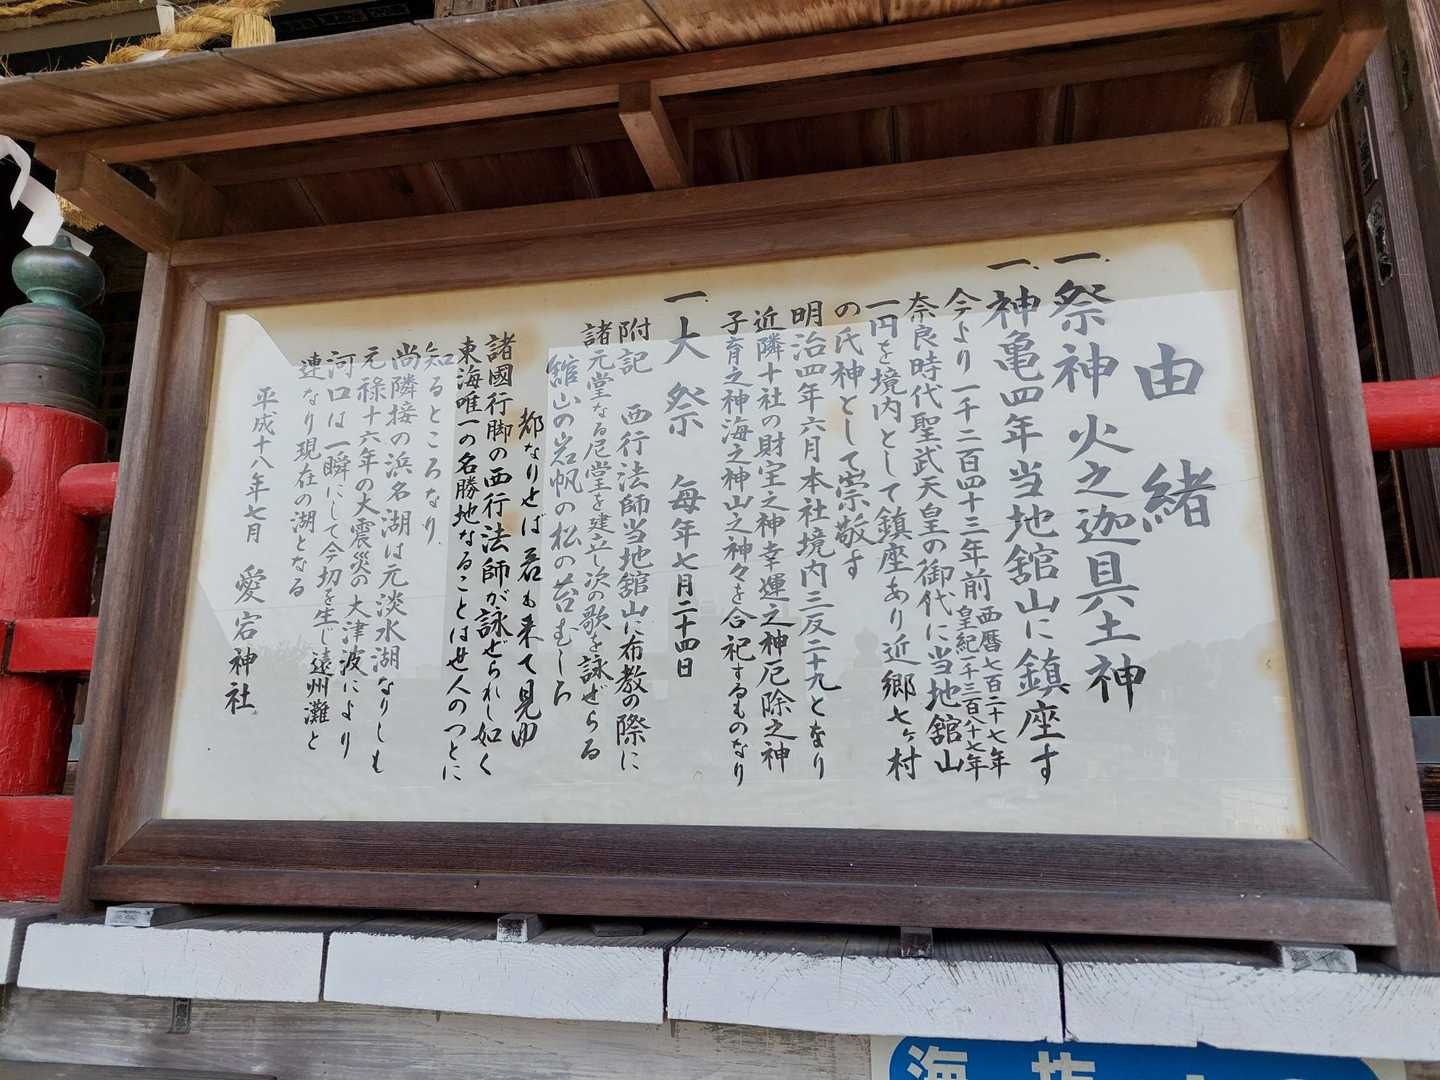 由緒
一、祭神 火之迦具土神
一、神亀四年当地舘山に鎮座す
今より一千二百四十三年前 西暦七百二十七年 皇紀一千三百八十七年
奈良時代聖武天皇の御代に当地舘山
一円を境内として鎮座あり近郷七ヶ村
の氏神として崇敬す
明治四年六月本社境内三反二十九となり
近隣十社の財宝之神幸運之神厄除之神
子育之神海之神山之神々を合祀するものなり
一、大祭 毎年七月二十四日
附記 西行法師当地舘山に布教の際に
諸元堂なる尼堂を建立し次の歌を詠ぜらる
舘山の岩帆の松の苔むしろ
都なりせば君も来て見ゆ
諸國行脚の西行法師が詠ぜられし如く
東海唯一の名勝地なることは世人のつとに
知るところなり
尚隣接の浜名湖は元淡水湖なりしも
元禄十六年の大震災の大津波により
河口は一瞬にして今切を生じ遠州灘と
連なり現在の湖となる
平成十八年七月 愛宕神社
海抜